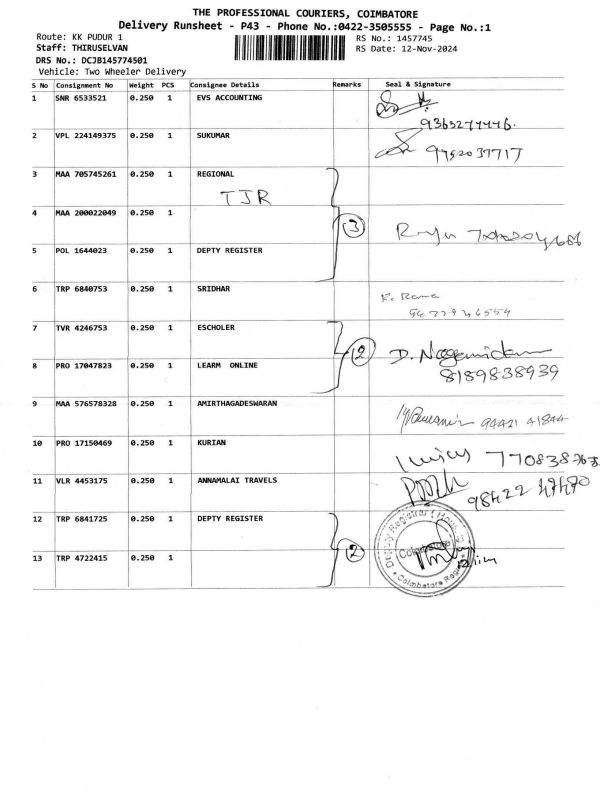 THE PROFESSIONAL COURIERS, COIMBATORE
Delivery Runsheet - P43 - Phone No.:0422-3505555 - Page No.:1
Route: KK PUDUR 1
RS No.: 1457745
Staff: THIRUSELVAN
RS Date: 12-Nov-2024
DRS No.: DCJB145774501
Vehicle: Two Wheeler Delivery
S No Consignment No Weight PCS Consignee Details Remarks Seal & Signature
1 SNR 6533521 0.250 1 EVS ACCOUNTING
2 VPL 224149375 0.250 1 SUKUMAR
3 MAA 705745261 0.250 1 REGIONAL
TJR
4 MAA 200022049 0.250 1
3
5 POL 1644023 0.250 1 DEPTY REGISTER
6 TRP 6840753 0.250 1 SRIDHAR
7 TVR 4246753 0.250 1 ESCHOLER
2
8 PRO 17047823 0.250 1 LEARM ONLINE
8189838939
9 MAA 576578328 0.250 1 AMIRTHAGADESWARAN
94421 41844
10 PRO 17150469 0.250 1 KURIAN
11 VLR 4453175 0.250 1 ANNAMALAI TRAVELS
98422 47470
12 TRP 6841725 0.250 1 DEPTY REGISTER
2
Coimbatore
13 TRP 4722415 0.250 1